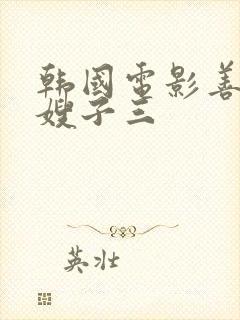 韩國电影善
嫂子三
英壮